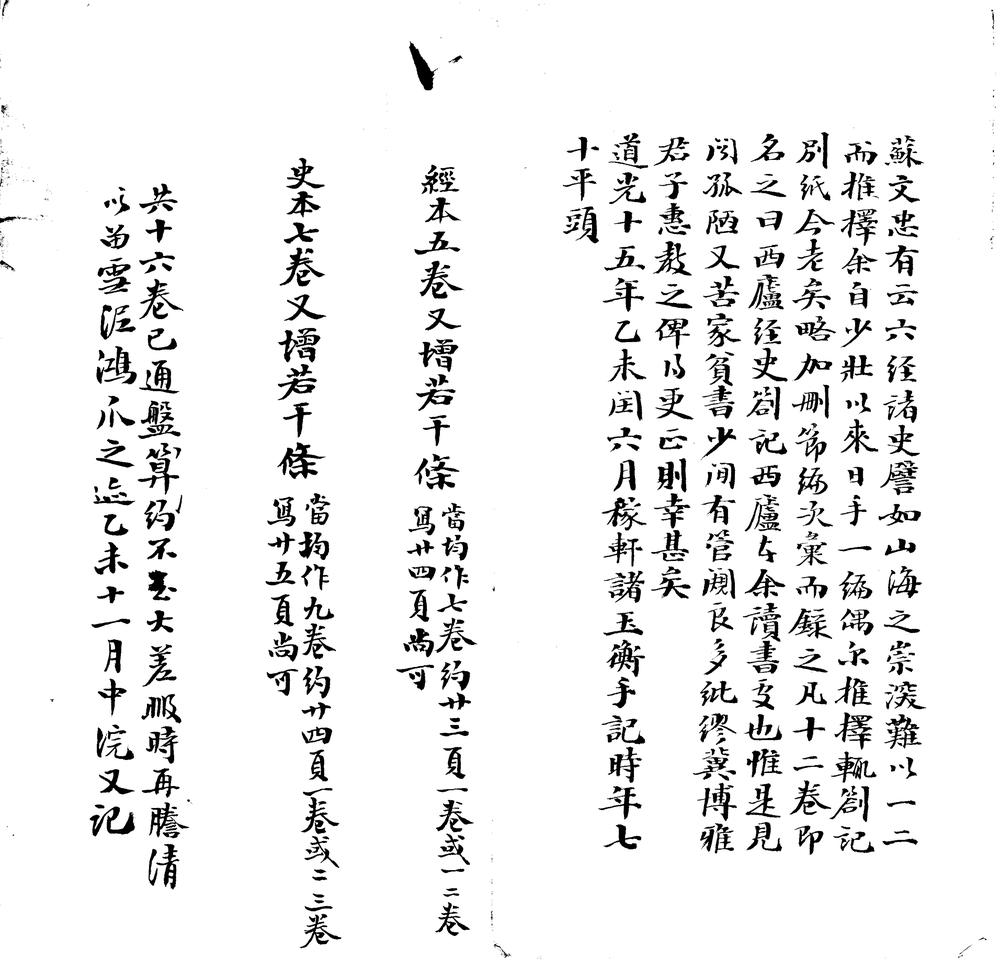 蘇文忠有云六經諸史譬如山海之崇深難以一二
而推擇余自少壯以來日手一編偶尔推擇輒劄記
別紙今老矣略加刪節編次彙而錄之凡十二卷即
名之曰西廬經史劄記西廬者余讀書處也惟是見
聞孤陋又苦家貧書少間有管闚良多紕繆冀博雅
君子惠教之俾得更正則幸甚矣
道光十五年乙未閏六月稼軒諸玉衡手記時年七
十平頭
經本五卷又增若干條
當均作七卷約廿三頁一卷或一二卷
寫廿四頁尚可
史本七卷又增若干條
當均作九卷約廿四頁一卷或二三卷
寫廿五頁尚可
共十六卷已通盤算約不甚大差暇時再謄清
以留雪泥鴻爪之迹乙未十一月中浣又記